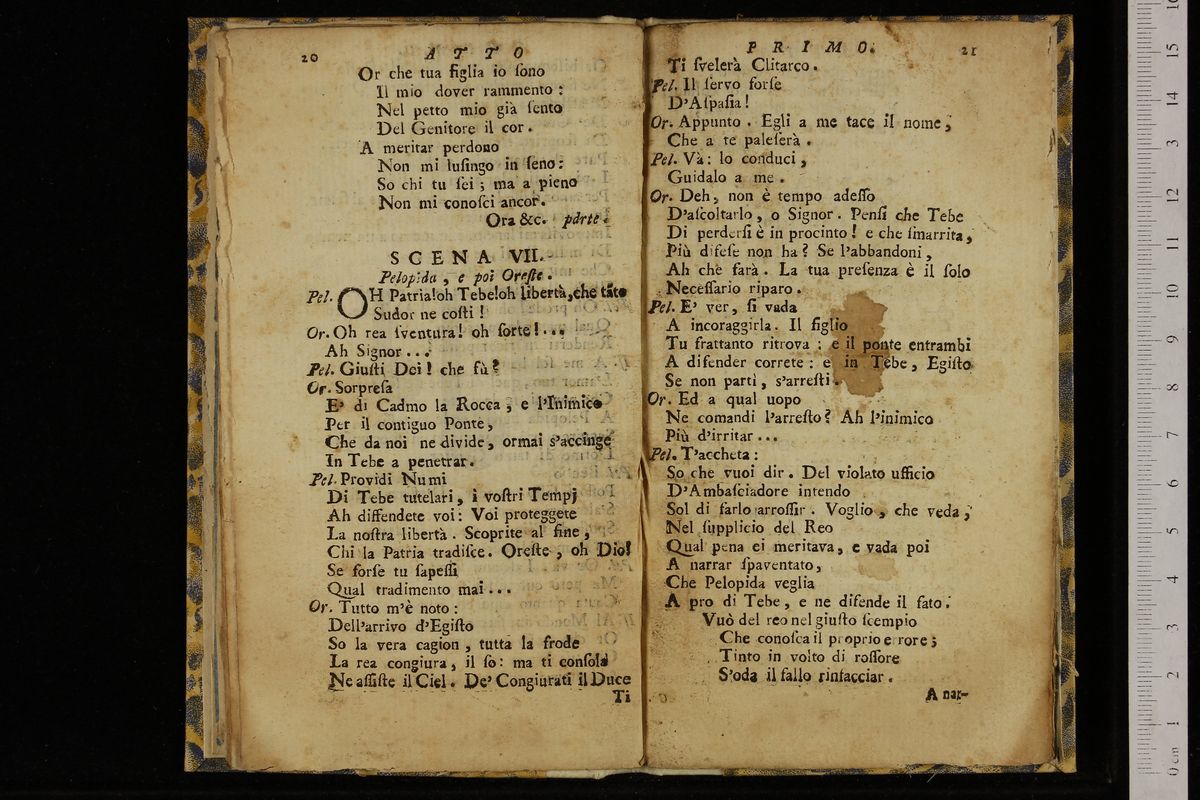 20
ATTO
Or che tua figlia io ſono
Il mio dover rammento :
Nel petto mio già ſento
Del Genitore il cor .
A meritar perdono
Non mi luſingo in ſeno :
So chi tu ſei ; ma a pieno
Non mi conoſci ancor .
Ora &c. parte .
SCENA VII.
Pelopida , e poi Oreſte .
Pel. OH Patria!oh Tebe!oh libertà,che tãto
Sudor ne coſti !
Or. Oh rea ſventura! oh ſorte! ...
Ah Signor ...
Pel. Giuſti Dei ! che fù ?
Or. Sorpreſa
E' di Cadmo la Rocca , e l'Inimico
Per il contiguo Ponte ,
Che da noi ne divide , ormai s'accinge
In Tebe a penetrar .
Pel. Providi Numi
Di Tebe tutelari , i voſtri Tempj
Ah diffendete voi : Voi proteggete
La noſtra libertà . Scoprite al fine ,
Chi la Patria tradiſce . Oreſte , oh Dio!
Se forſe tu ſapeſſi
Qual tradimento mai ...
Or. Tutto m'è noto :
Dell'arrivo d'Egiſto
So la vera cagion , tutta la frode
La rea congiura , il ſo : ma ti conſola
Ne aſſiſte il Ciel . De' Congiurati il Duce
Ti
PRIMO.
21
Ti ſvelerà Clitarco .
Pel. Il ſervo forſe
D'Aſpaſia !
Or. Appunto . Egli a me tace il nome ,
Che a te paleſerà .
Pel. Và : lo conduci ,
Guidalo a me .
Or. Deh , non è tempo adeſſo
D'aſcoltarlo , o Signor . Penſi che Tebe
Di perderſi è in procinto ! e che ſmarrita ,
Più difeſe non ha ? Se l'abbandoni ,
Ah che farà . La tua preſenza è il ſolo
Neceſſario riparo .
Pel. E' ver , ſi vada
A incoraggirla . Il figlio
Tu frattanto ritrova : e il ponte entrambi
A difender correte : e in Tebe , Egiſto
Se non parti , s'arreſti .
Or. Ed a qual uopo
Ne comandi l'arreſto ? Ah l'inimico
Più d'irritar ...
Pel. T'accheta :
So che vuoi dir . Del violato ufficio
D'Ambaſciadore intendo
Sol di farlo arroſſir . Voglio , che veda ,
Nel ſupplicio del Reo
Qual pena ei meritava , e vada poi
A narrar ſpaventato ,
Che Pelopida veglia
A pro di Tebe , e ne difende il fato .
Vuò del reo nel giuſto ſcempio
Che conoſca il proprio errore ;
Tinto in volto di roſſore
S'oda il fallo rinfacciar .
A nar-
0 cm 1 2 3 4 5 6 7 8 9 10 11 12 13 14 15